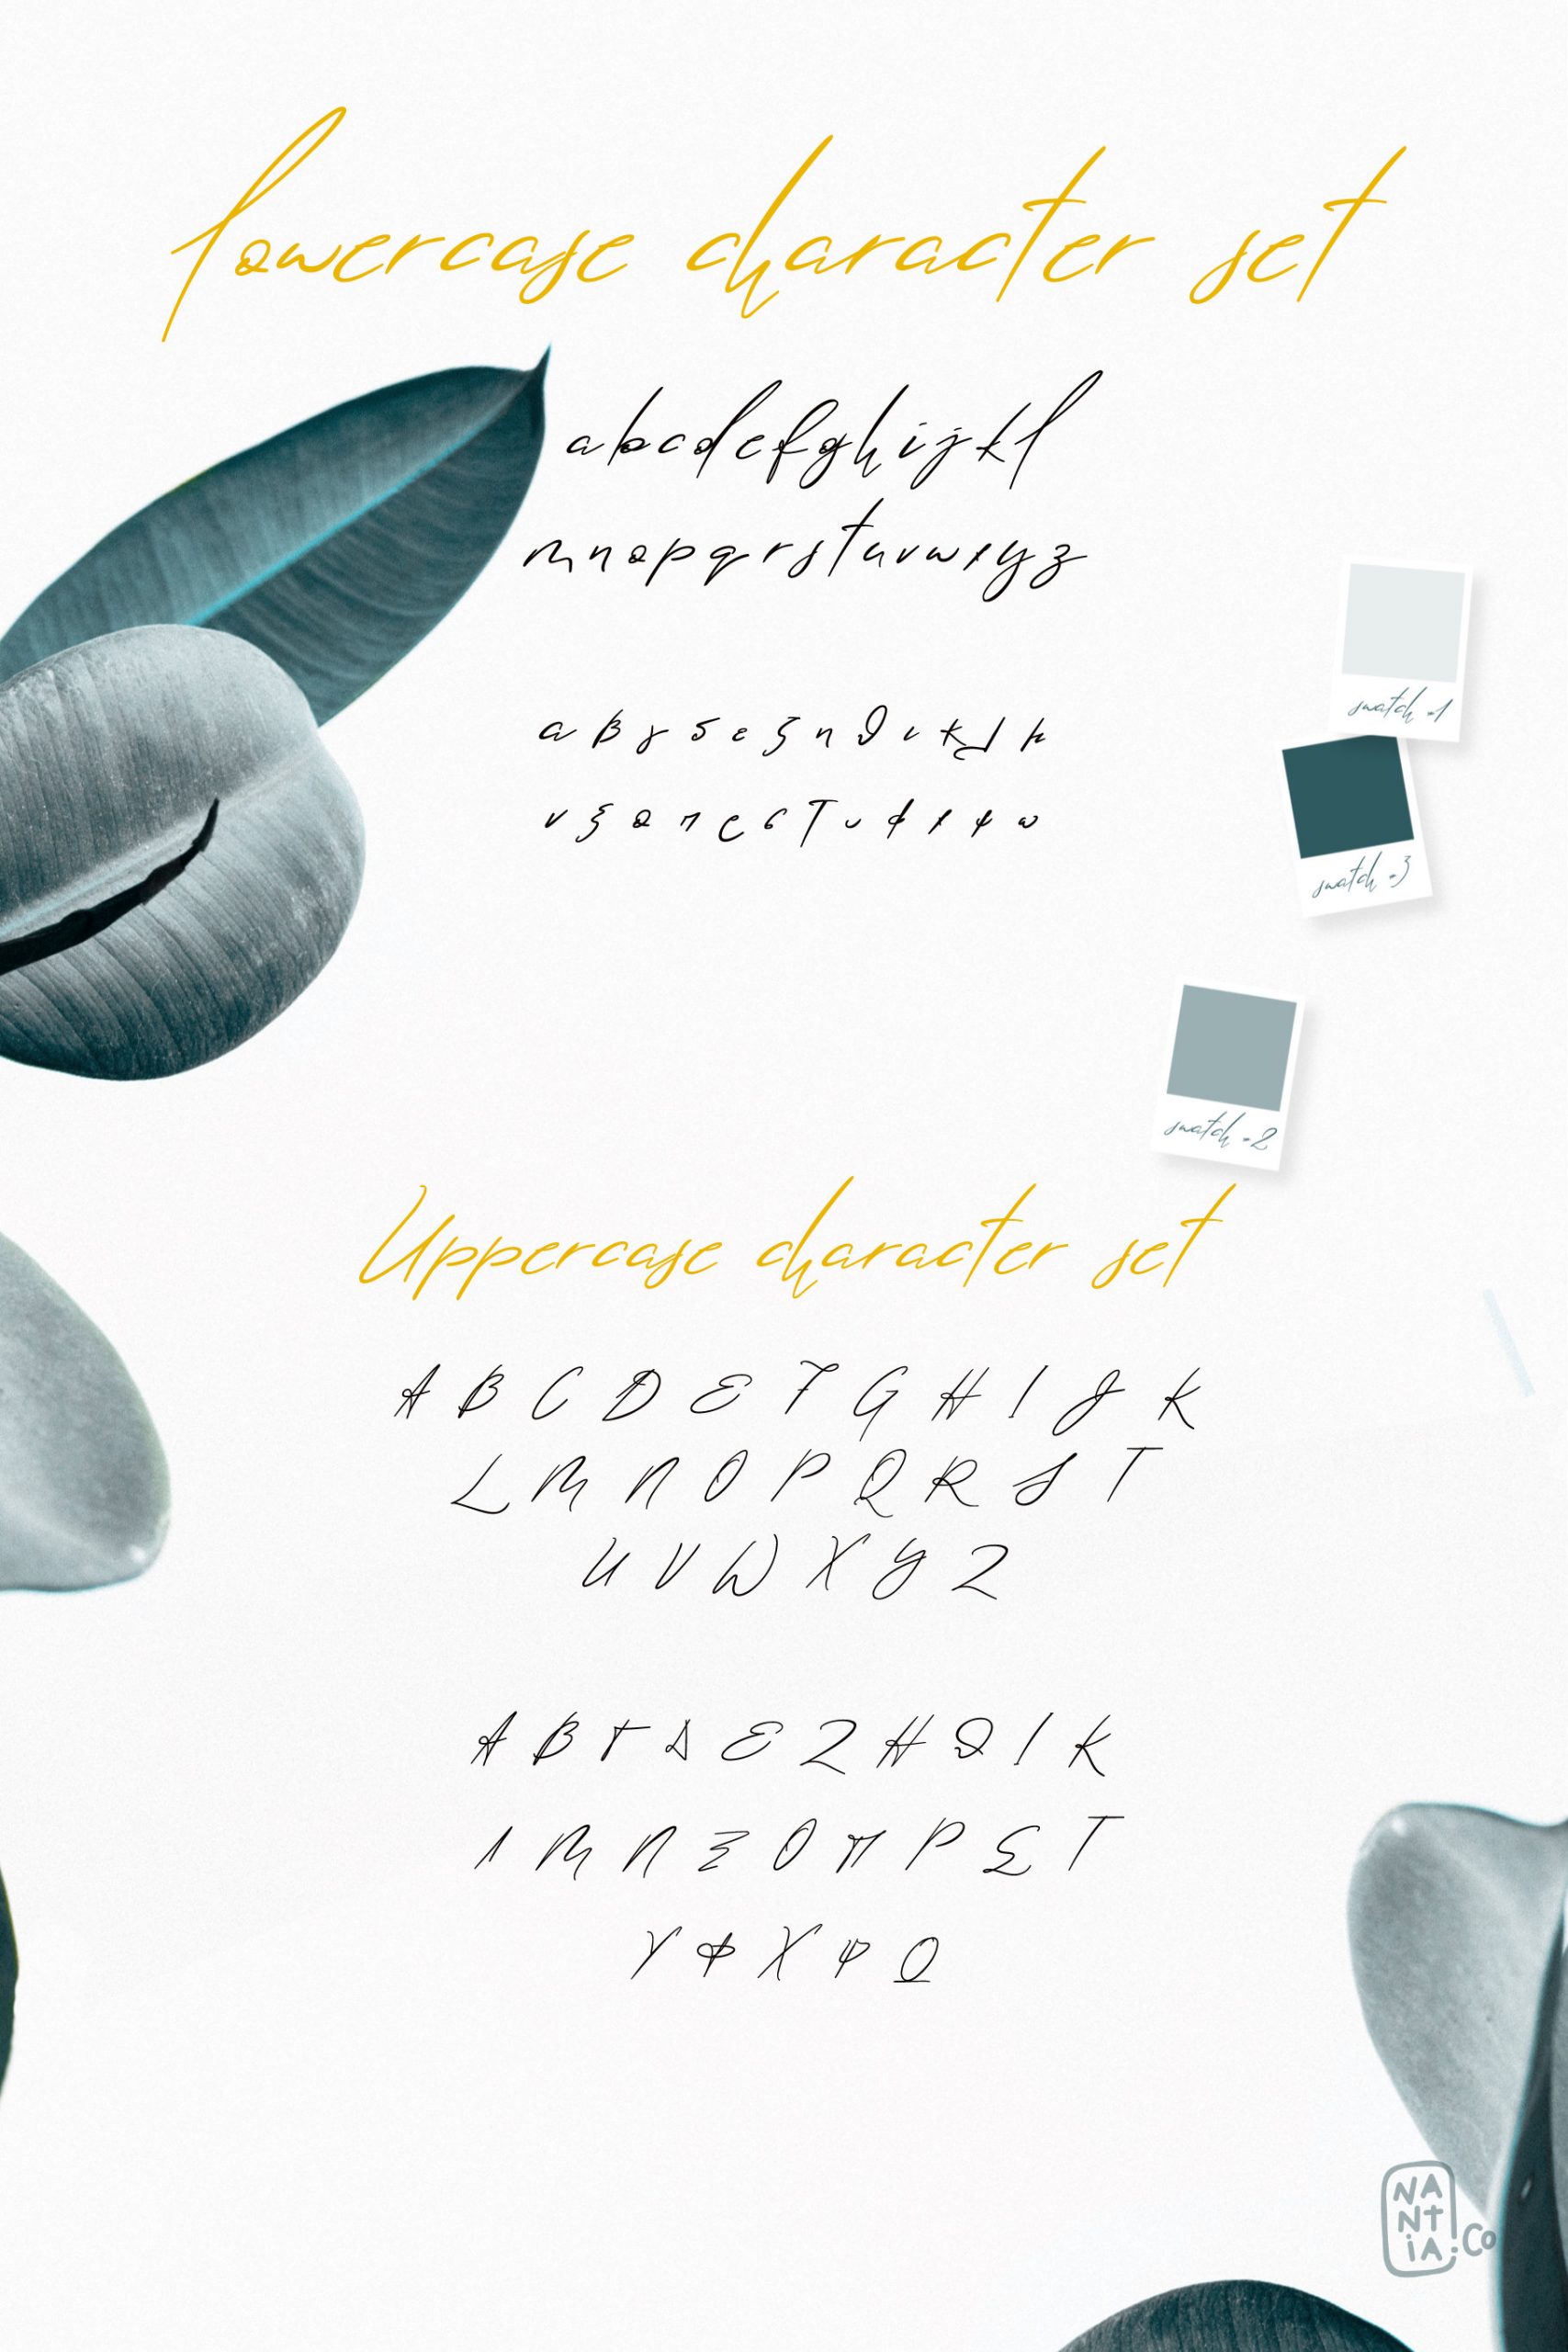 lowercase character set
abcdefghijkl
mnopqrstuvwxyz
α β γ δ ε ζ η θ ι κ λ μ
ν ξ ο π ρ σ τ υ φ χ ψ ω
swatch #1
swatch #3
swatch #2
Uppercase character set
A B C D E F G H I J K
L M N O P Q R S T
U V W X Y Z
Α Β Γ Δ Ε Ζ Η Θ Ι Κ
Λ Μ Ν Ξ Ο Π Ρ Σ Τ
Υ Φ Χ Ψ Ω
NA
Nt
iA.Co